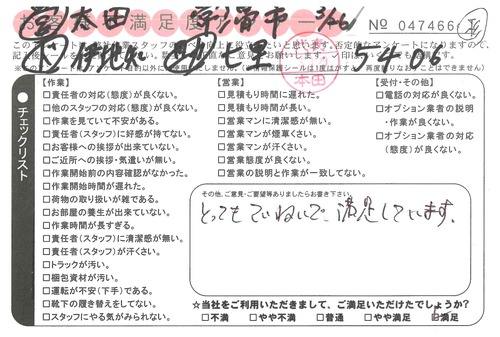 お客様満足度アンケート
太田 宇治市 3/26
No 047466
営 伊地知 七里 5.4.06
本田
【作業】
□責任者の対応(態度)が良くない。
□他のスタッフの対応(態度)が良くない。
□作業を見ていて不安がある。
□責任者(スタッフ)に好感が持てない。
□お客様への挨拶が出来ていない。
□ご近所への挨拶・気遣いが無い。
□作業開始前の内容確認がなかった。
□作業開始時間が遅れた。
□荷物の取り扱いが雑である。
□お部屋の養生が出来ていない。
□作業時間が長すぎる。
□責任者(スタッフ)に清潔感が無い。
□責任者(スタッフ)が汗くさい。
□トラックが汚い。
□梱包資材が汚い。
□運転が不安(下手)である。
□靴下の履き替えをしてない。
□スタッフにやる気がみられない。
【営業】
□見積もり時間に遅れた。
□見積もり時間が長い。
□営業マンに清潔感が無い。
□営業マンが煙草くさい。
□営業マンが汗くさい。
□営業態度が良くない。
□営業の説明と作業が一致してない。
【受付・その他】
□電話の対応が良くない。
□オプション業者の説明
・作業が良くない。
□オプション業者の対応
(態度)が良くない。
●チェックリスト
その他、ご意見・ご要望等ありましたらお書き下さい。
とってもていねいで、満足しています。
☆当社をご利用いただきまして、ご満足いただけたでしょうか?
□不満 □やや不満 □普通 □やや満足 □満足